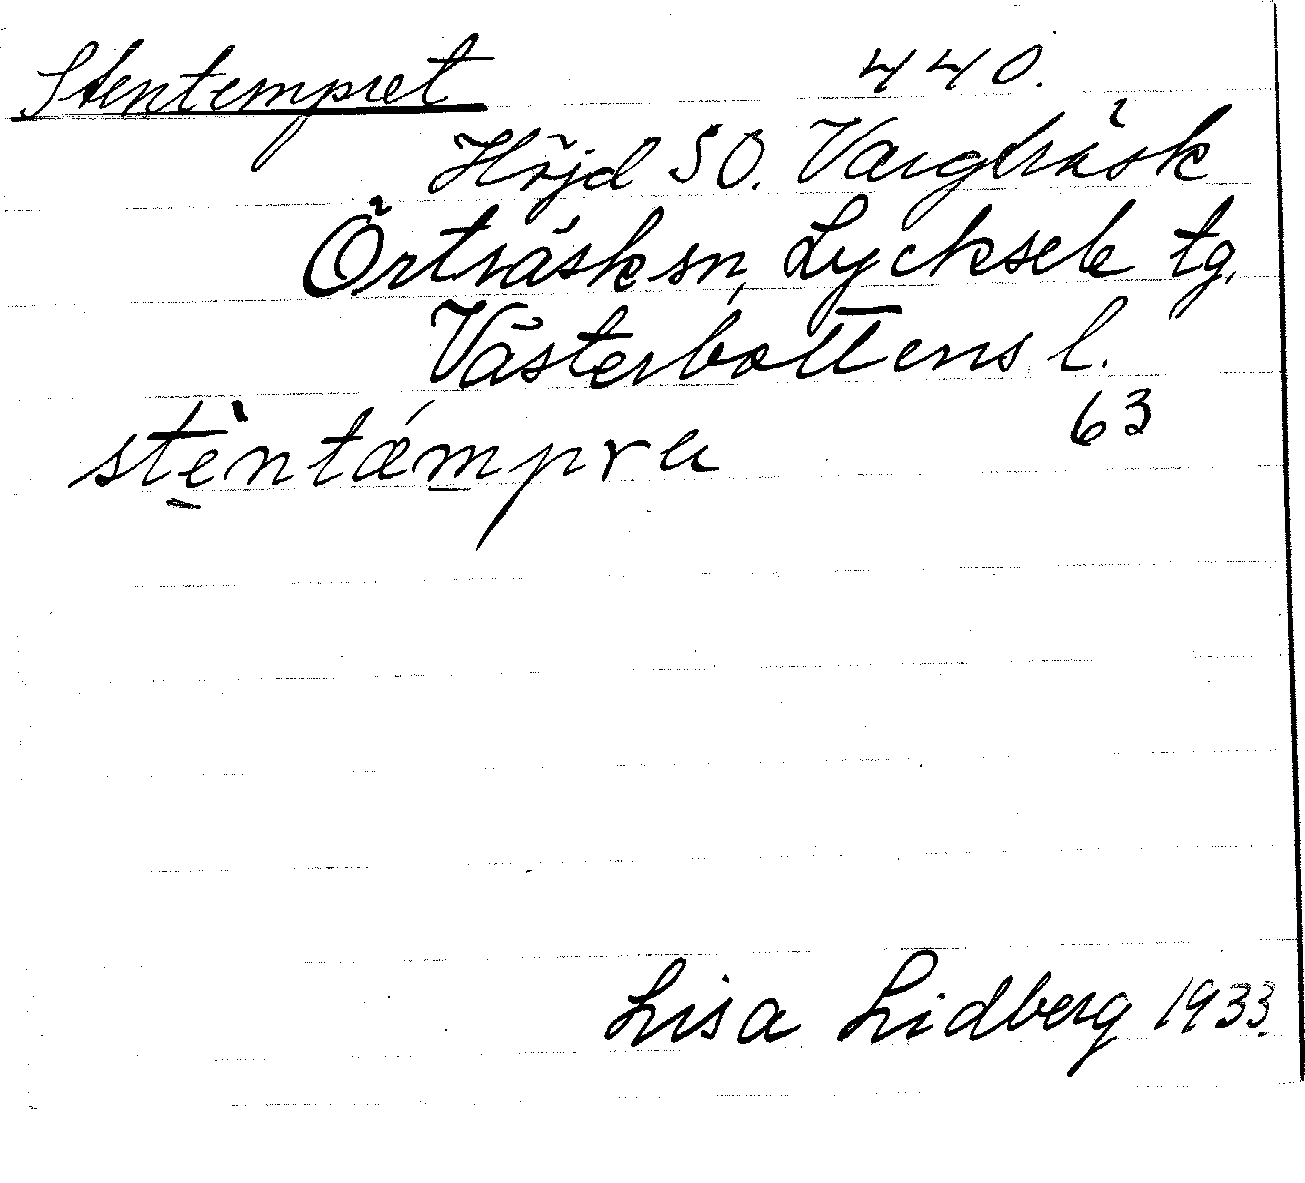 Stentempret 440.
Höjd SO. Vargträsk
Örträsk sn, Lycksele tg.
Västerbottens l.
63
stèntǽmpra
Lisa Lidberg 1933.